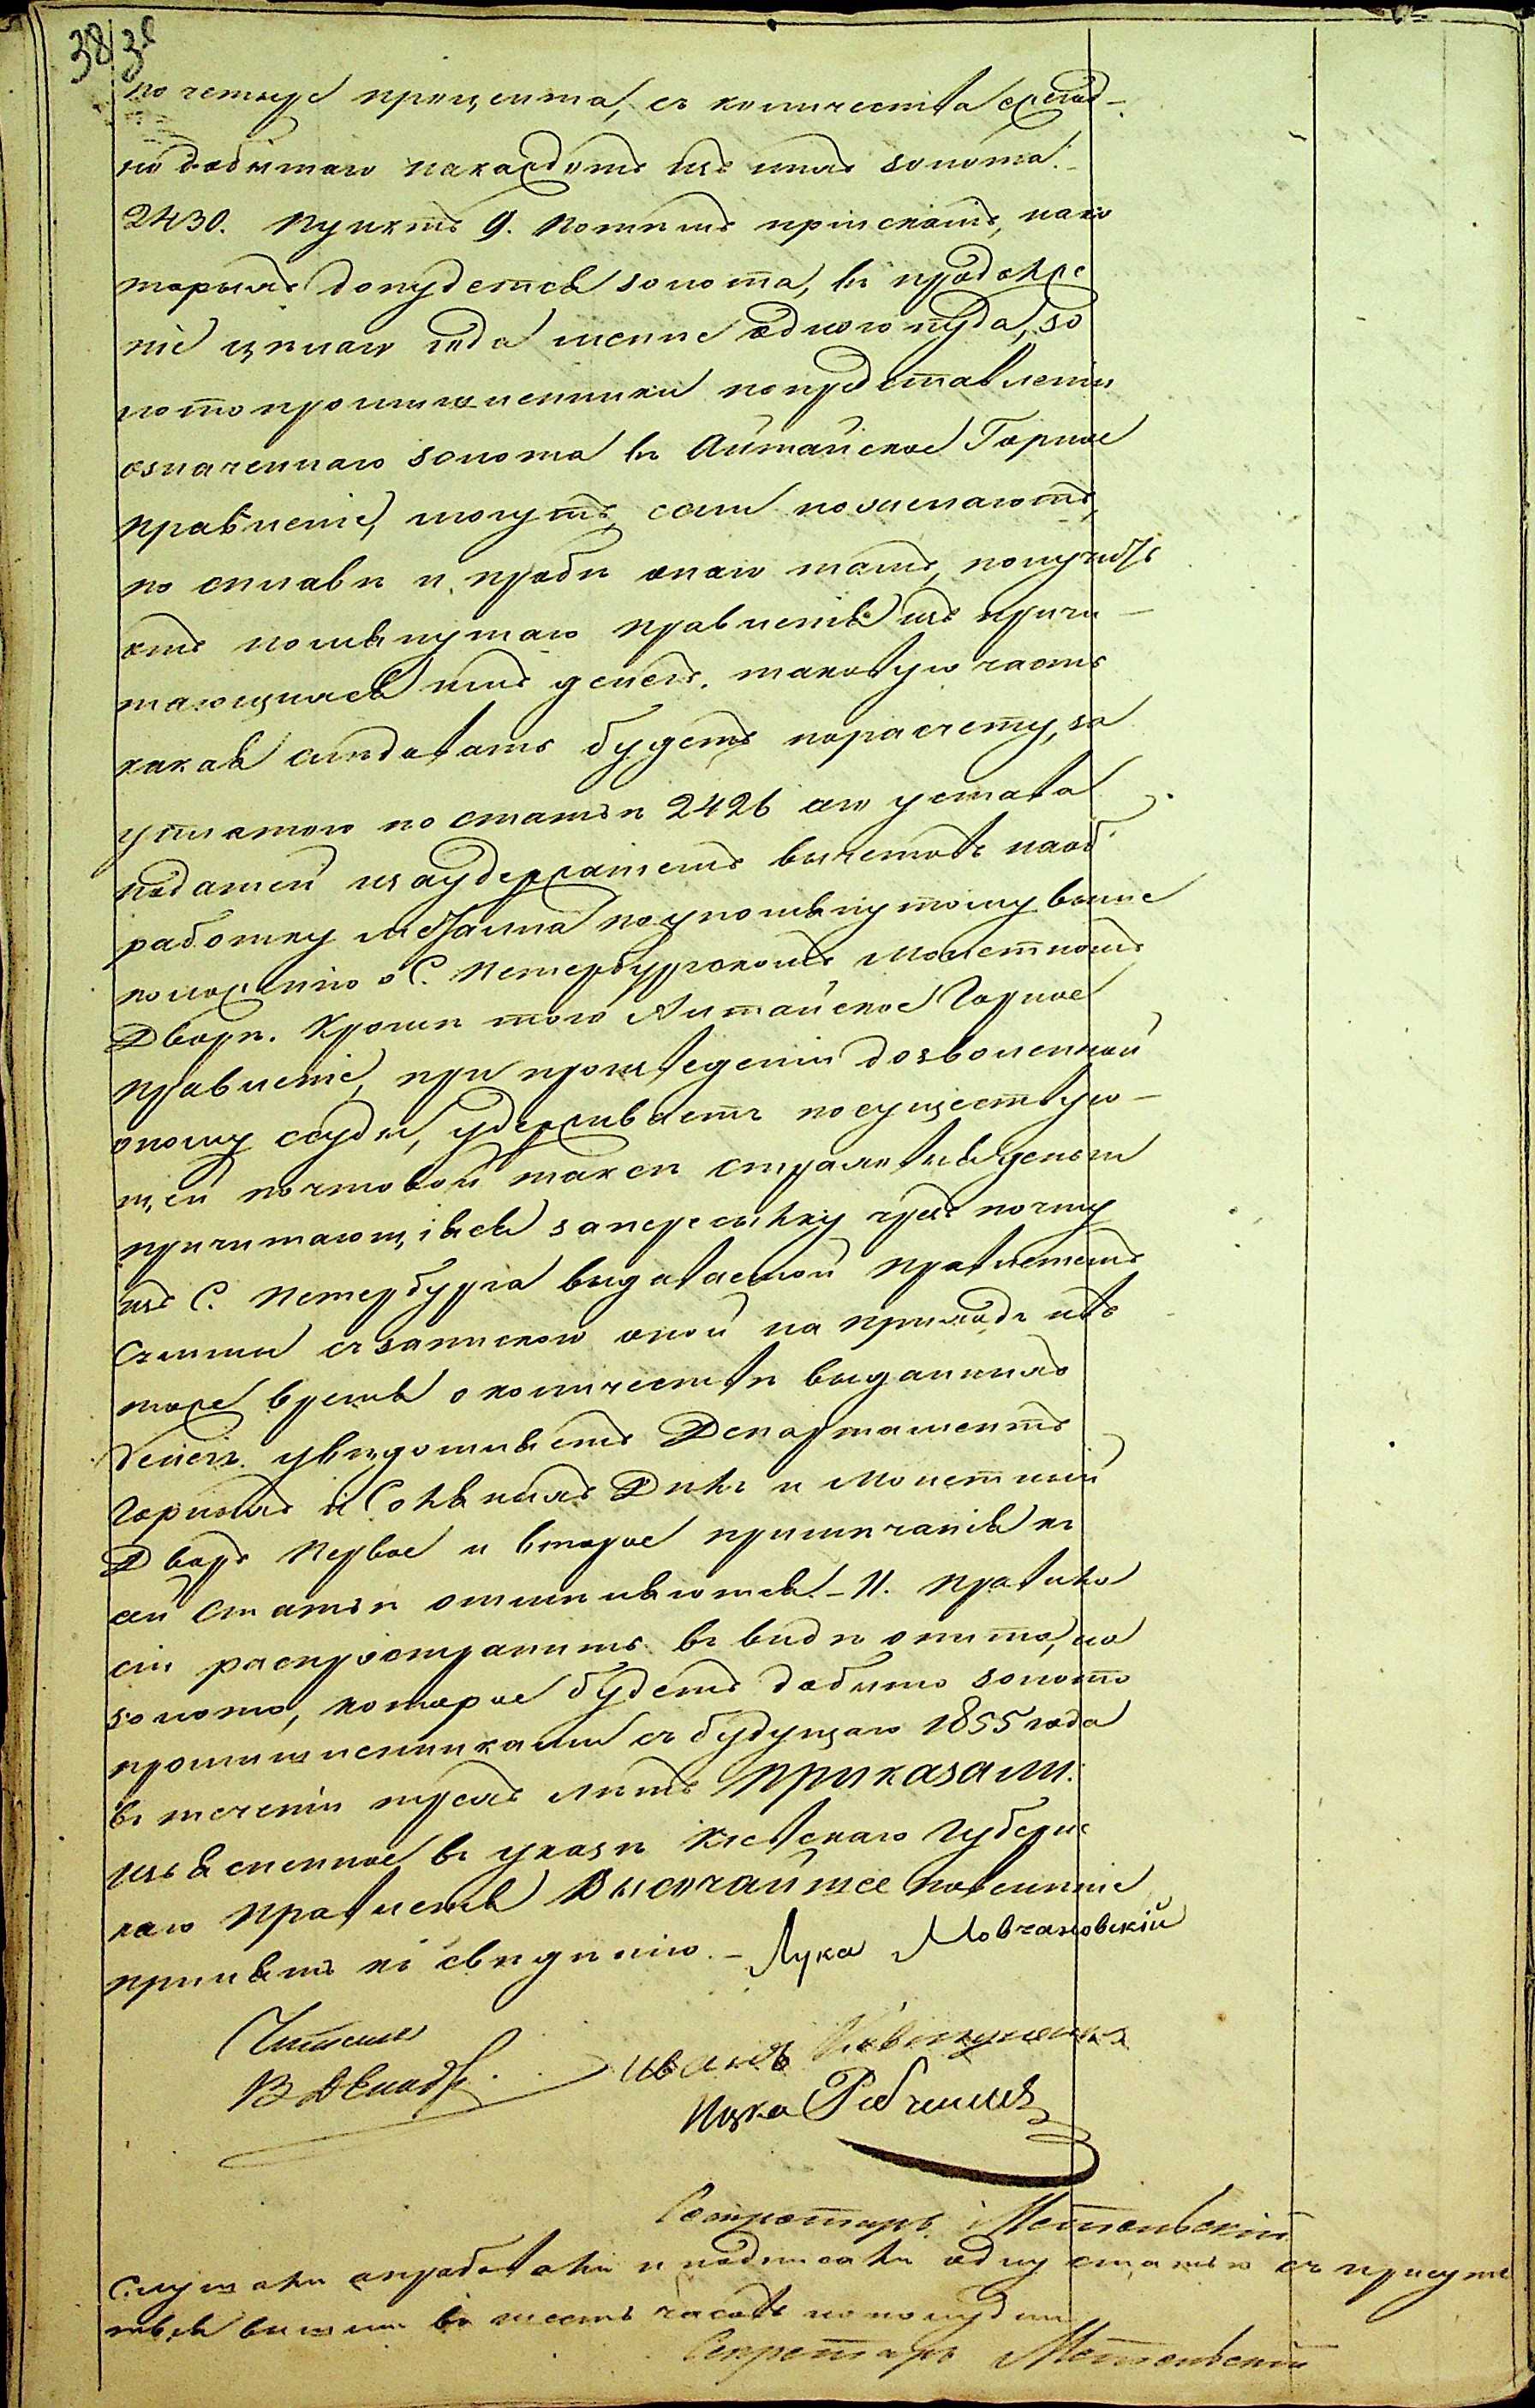 38
по четыре процента, съ количества ежегод-
но добытаго накаждомъ изъ нихъ золота.
2430. Пунктъ 9. Потѣмъ пріискамъ, нако
торыхъ добудется золота, въ продолже
ніе цѣлаго года менѣе одного пуда, зо
лотопромышленники попредставленіи
означеннаго золота въ Алтайское Горное
Правленіе, могутъ, если пожелаютъ,
по сплавѣ и пробѣ онаго тамъ, получать
отъ помянутаго Правленія изъ причи-
тающихся имъ денегъ. таковую часть
какая слѣдовать будетъ поразсчету, за
уплатою по статьѣ 2426 сего устава
податей изаудержаніемъ вычетовъ наоб
работку металла поупомянутому выше
положенію о С. Петербургскомъ Монетномъ
Дворѣ. Кромѣ того Алтайское Горное
Правленіе, при производствѣ дозволенной
оному ссуды, удерживаетъ посуществую-
щей почтовой таксѣ страховыя деньги
причитающіяся запересылку чрезъ почту
изъ С. Петербурга выдаваемой Правленіемъ
суммы съ запискою оной на приходъ ивъ
тоже время о количествѣ выданныхъ
денегъ увѣдомляетъ Департаментъ
Горныхъ и Соляныхъ Дѣлъ и Монетный
Дворъ Первое и второе примѣчанія къ
сей Статьѣ отмѣняются. – II. Правила
сіи распространить въ видѣ опыта, на
золото, которое будетъ добыто золото
промышленниками съ будущаго 1855 года
въ теченіи трехъ лѣтъ Приказали:
Изъясненное въ указѣ Кіевскаго Губернс
каго Правленія Высочайшее повелѣніе
принять къ свѣдѣнію. – Лука Мовчановскій
Иванъ
Секретарь
Слушали опробовали и подписали одну статью съ присутс
твія вышли въ шесть часовъ пополудни
Секретарь